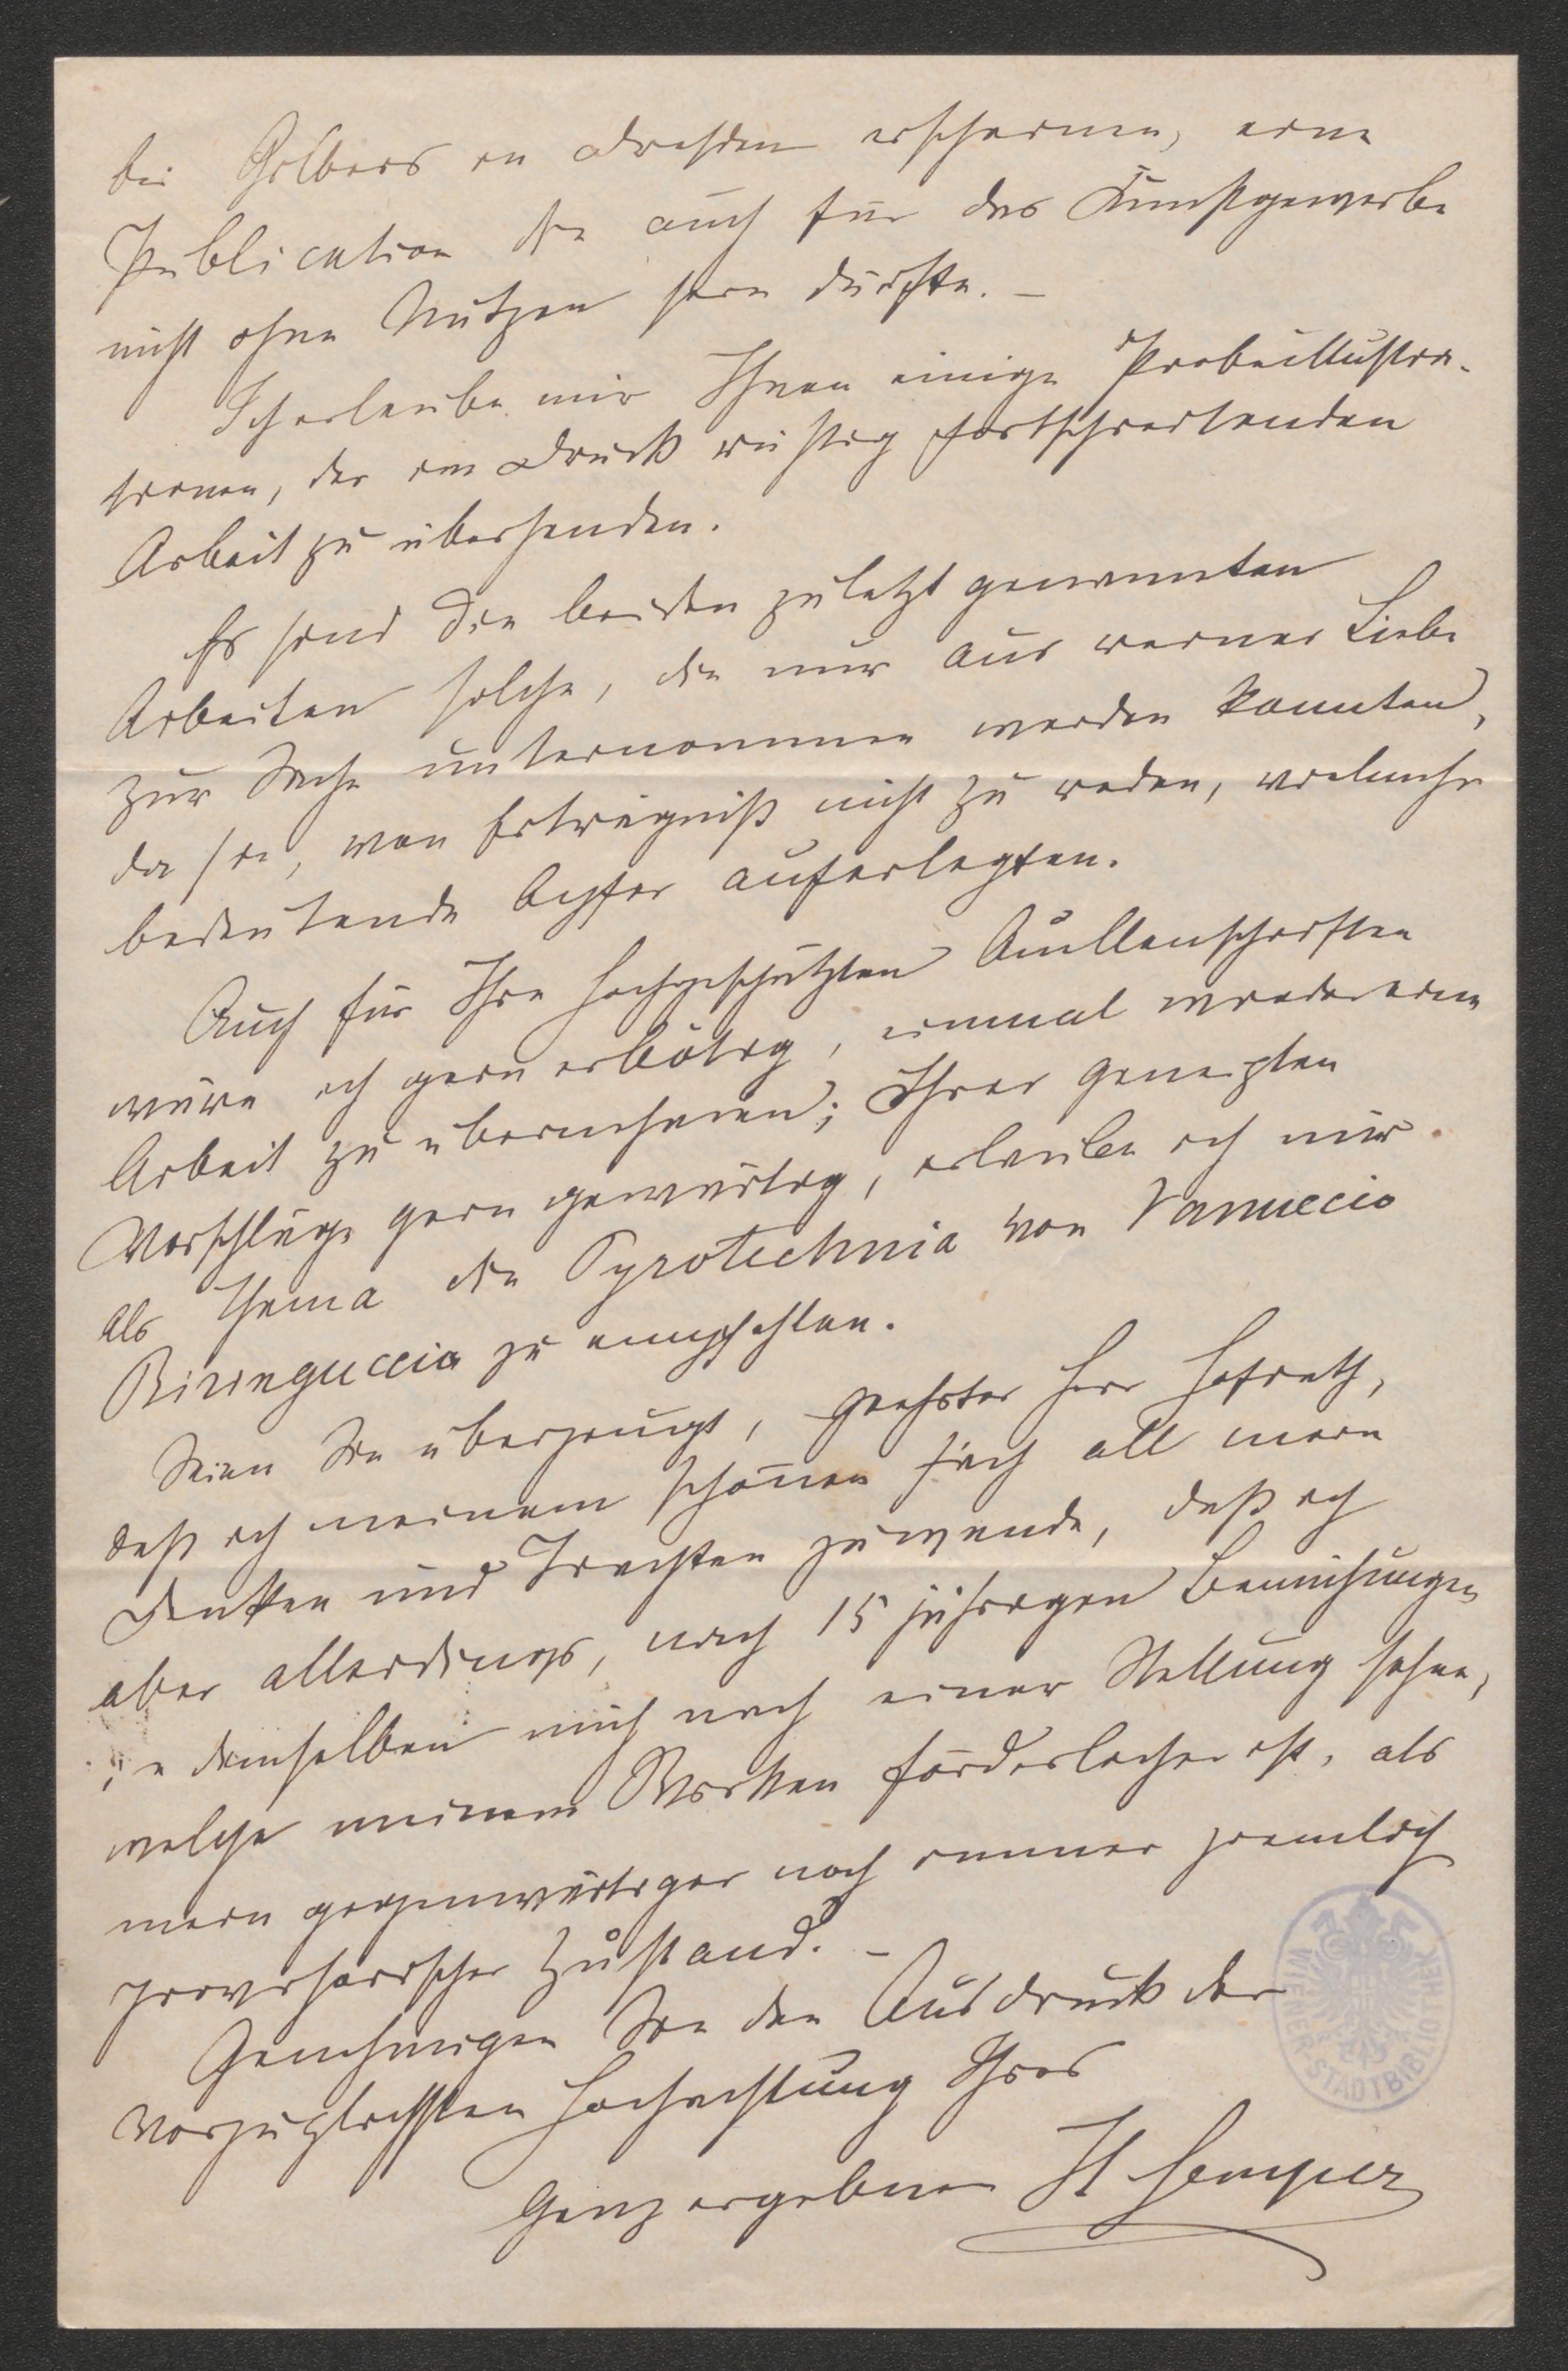 bei Gilbers in Dresden erscheinen, eine
Publication die auch für das Kunstgewerbe
nicht ohne Nutzen sein dürfte. –
Ich erlaube mir Ihnen einige Probeillustra-
tionen, der im Druck rüstig fortschreitenden
Arbeit zu übersenden.
Es sind die beiden zuletzt genannten
Arbeiten solche, die nur aus reiner Liebe
zur Sache unternommen werden konnten,
da sie, von Erträgniß nicht zu reden, vielmehr
bedeutende Opfer auferlegten.
Auch für Ihre hochgeschätzten Quellenschriften
wäre ich gern erbötig, einmal wieder eine
Arbeit zu übernehmen; Ihrer geneigten
Vorschläge gern gewärtig, erlaube ich mir
als Thema die Pyrotechnia von Vanuccio
Biringuccio zu empfehlen.
Seien Sie überzeugt, geehrter Herr Hofrath,
daß ich meinem schönen Fach all mein
Denken und Trachten zuwende, daß ich
aber allerdings, nach 15 jährigen Bemühungen
in demselben mich nach einer Stellung sehne,
welche meinem Wirken förderlicher ist, als
mein gegenwärtiger noch immer ziemlich
provisorischer Zustand. –
Genehmigen Sie den Ausdruck der
vorzüglichsten Hochachtung Ihres
Ganz ergebenen H Semper
WIENER-STADTBIBLIOTHEK